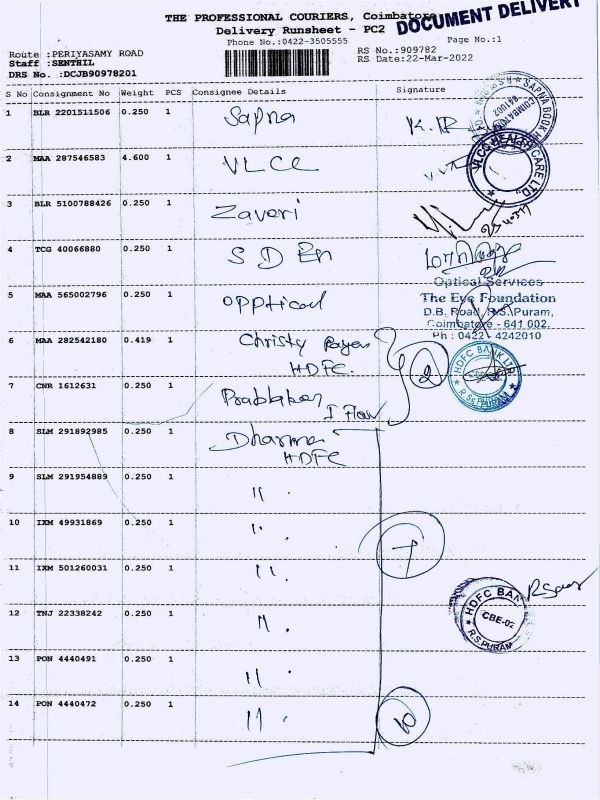 THE PROFESSIONAL COURIERS, Coimbatore
DOCUMENT DELIVERY
Delivery Runsheet - PC2
Phone No.:0422-3505555
Page No.:1
Route :PERIYASAMY ROAD
RS No.:909782
Staff :SENTHIL
RS Date:22-Mar-2022
DRS No. :DCJB90978201
S No Consignment No Weight PCS Consignee Details Signature
1 BLR 2201511506 0.250 1 Sapna
SAPNA BOOK
COIMBATORE
641002
2 MAA 287546583 4.600 1 VLCC
VLCC HEALTH CARE LTD.
3 BLR 5100788426 0.250 1 Zaveri
4 TCG 40066880 0.250 1 S D En
5 MAA 565002796 0.250 1 opptical
Optical Services
The Eye Foundation
D.B. Road, R.S. Puram,
Coimbatore - 641 002.
Ph : 0422 - 4242010
6 MAA 282542180 0.419 1 Christy
HDFC.
2
HDFC BANK LTD
R.S. PURAM
7 CNR 1612631 0.250 1 I Floor
8 SLM 291892985 0.250 1 Dharma
HDFC
9 SLM 291954889 0.250 1 "
10 IXM 49931869 0.250 1 "
7
11 IXM 501260031 0.250 1 "
12 TNJ 22338242 0.250 1 "
HDFC BANK
CBE-02
R.S.PURAM
13 PON 4440491 0.250 1 "
14 PON 4440472 0.250 1 "
10